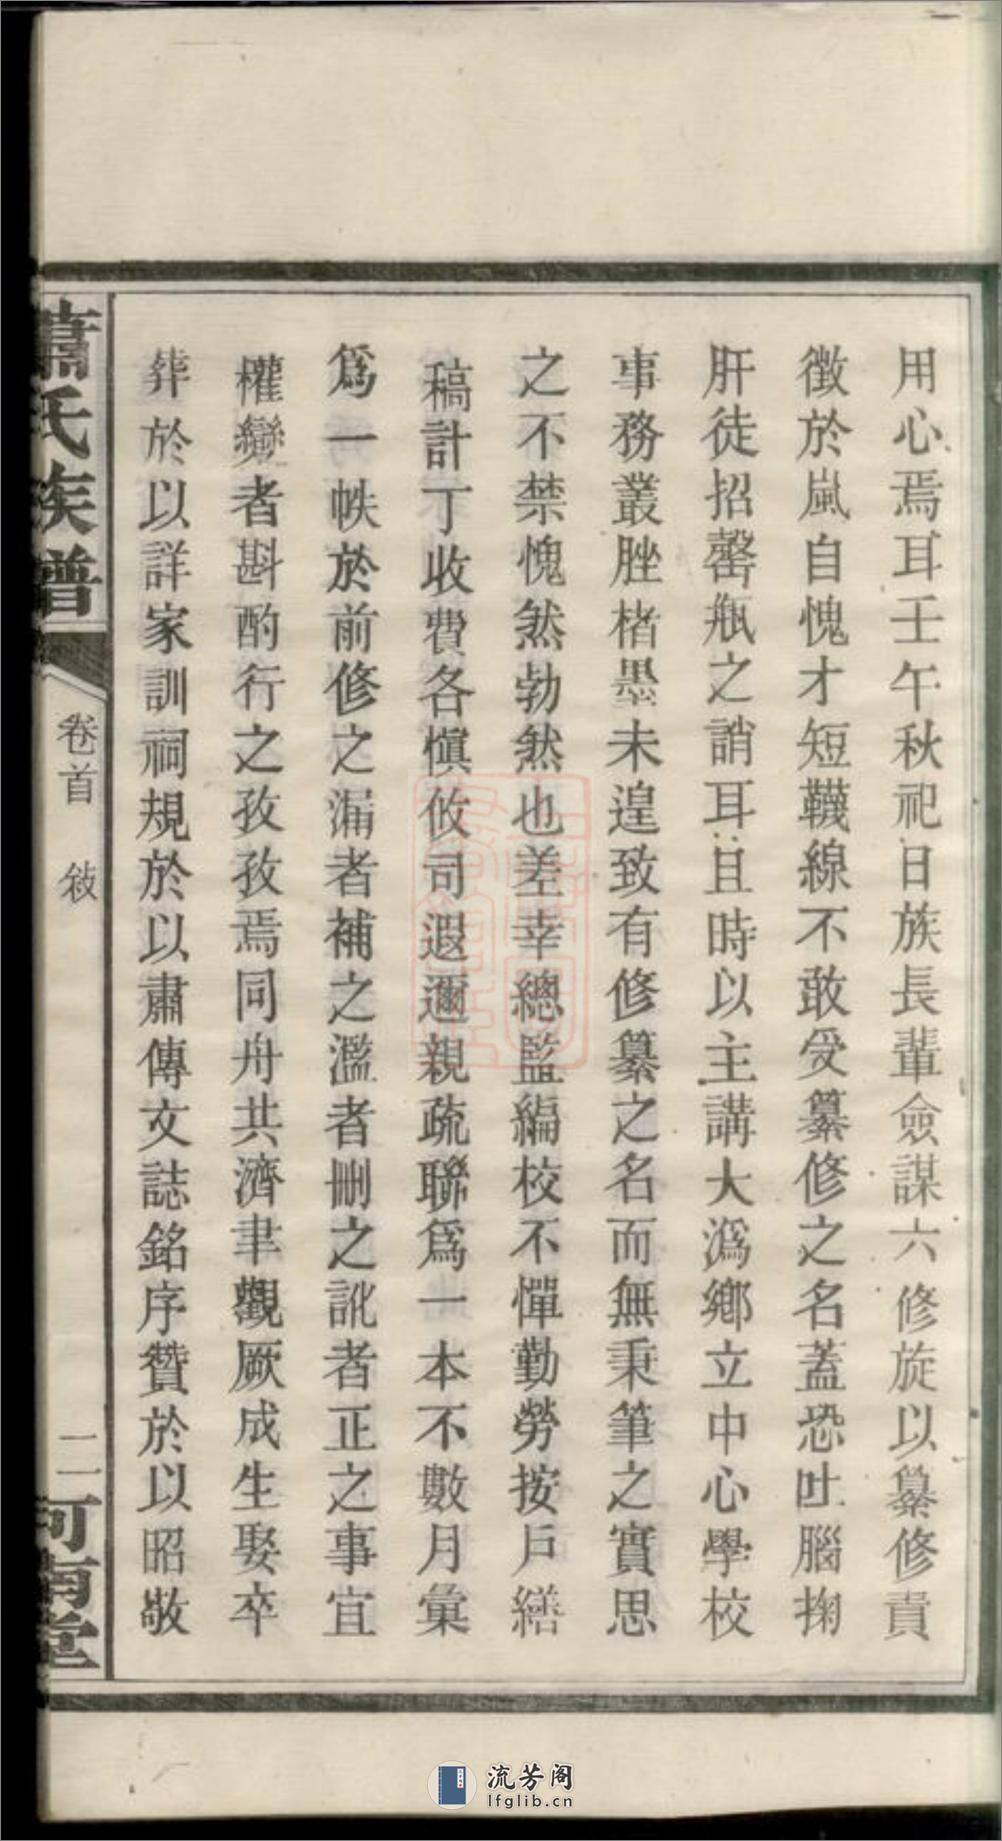 用心焉耳壬午秋祀日族長輩僉謀六修旋以纂修責
徵於嵐自愧才短韈線不敢受纂修之名蓋恐吐腦掬
肝徒招罄瓶之誚耳且時以主講大溈鄉立中心學校
事務叢脞楮墨未遑致有修纂之名而無秉筆之實思
之不禁愧然勃然也差幸總監編校不憚勤勞按戶繕
稿計丁收費各慎攸司遐邇親疏聯爲一本不數月彙
爲一帙於前修之漏者補之濫者刪之訛者正之事宜
權變者斟酌行之孜孜焉同舟共濟聿觀厥成生娶卒
葬於以詳家訓祠規於以肅傳文誌銘序贊於以昭敬
蕭氏族譜
卷首 敍
二
河南堂
流芳阁
lfglib.cn